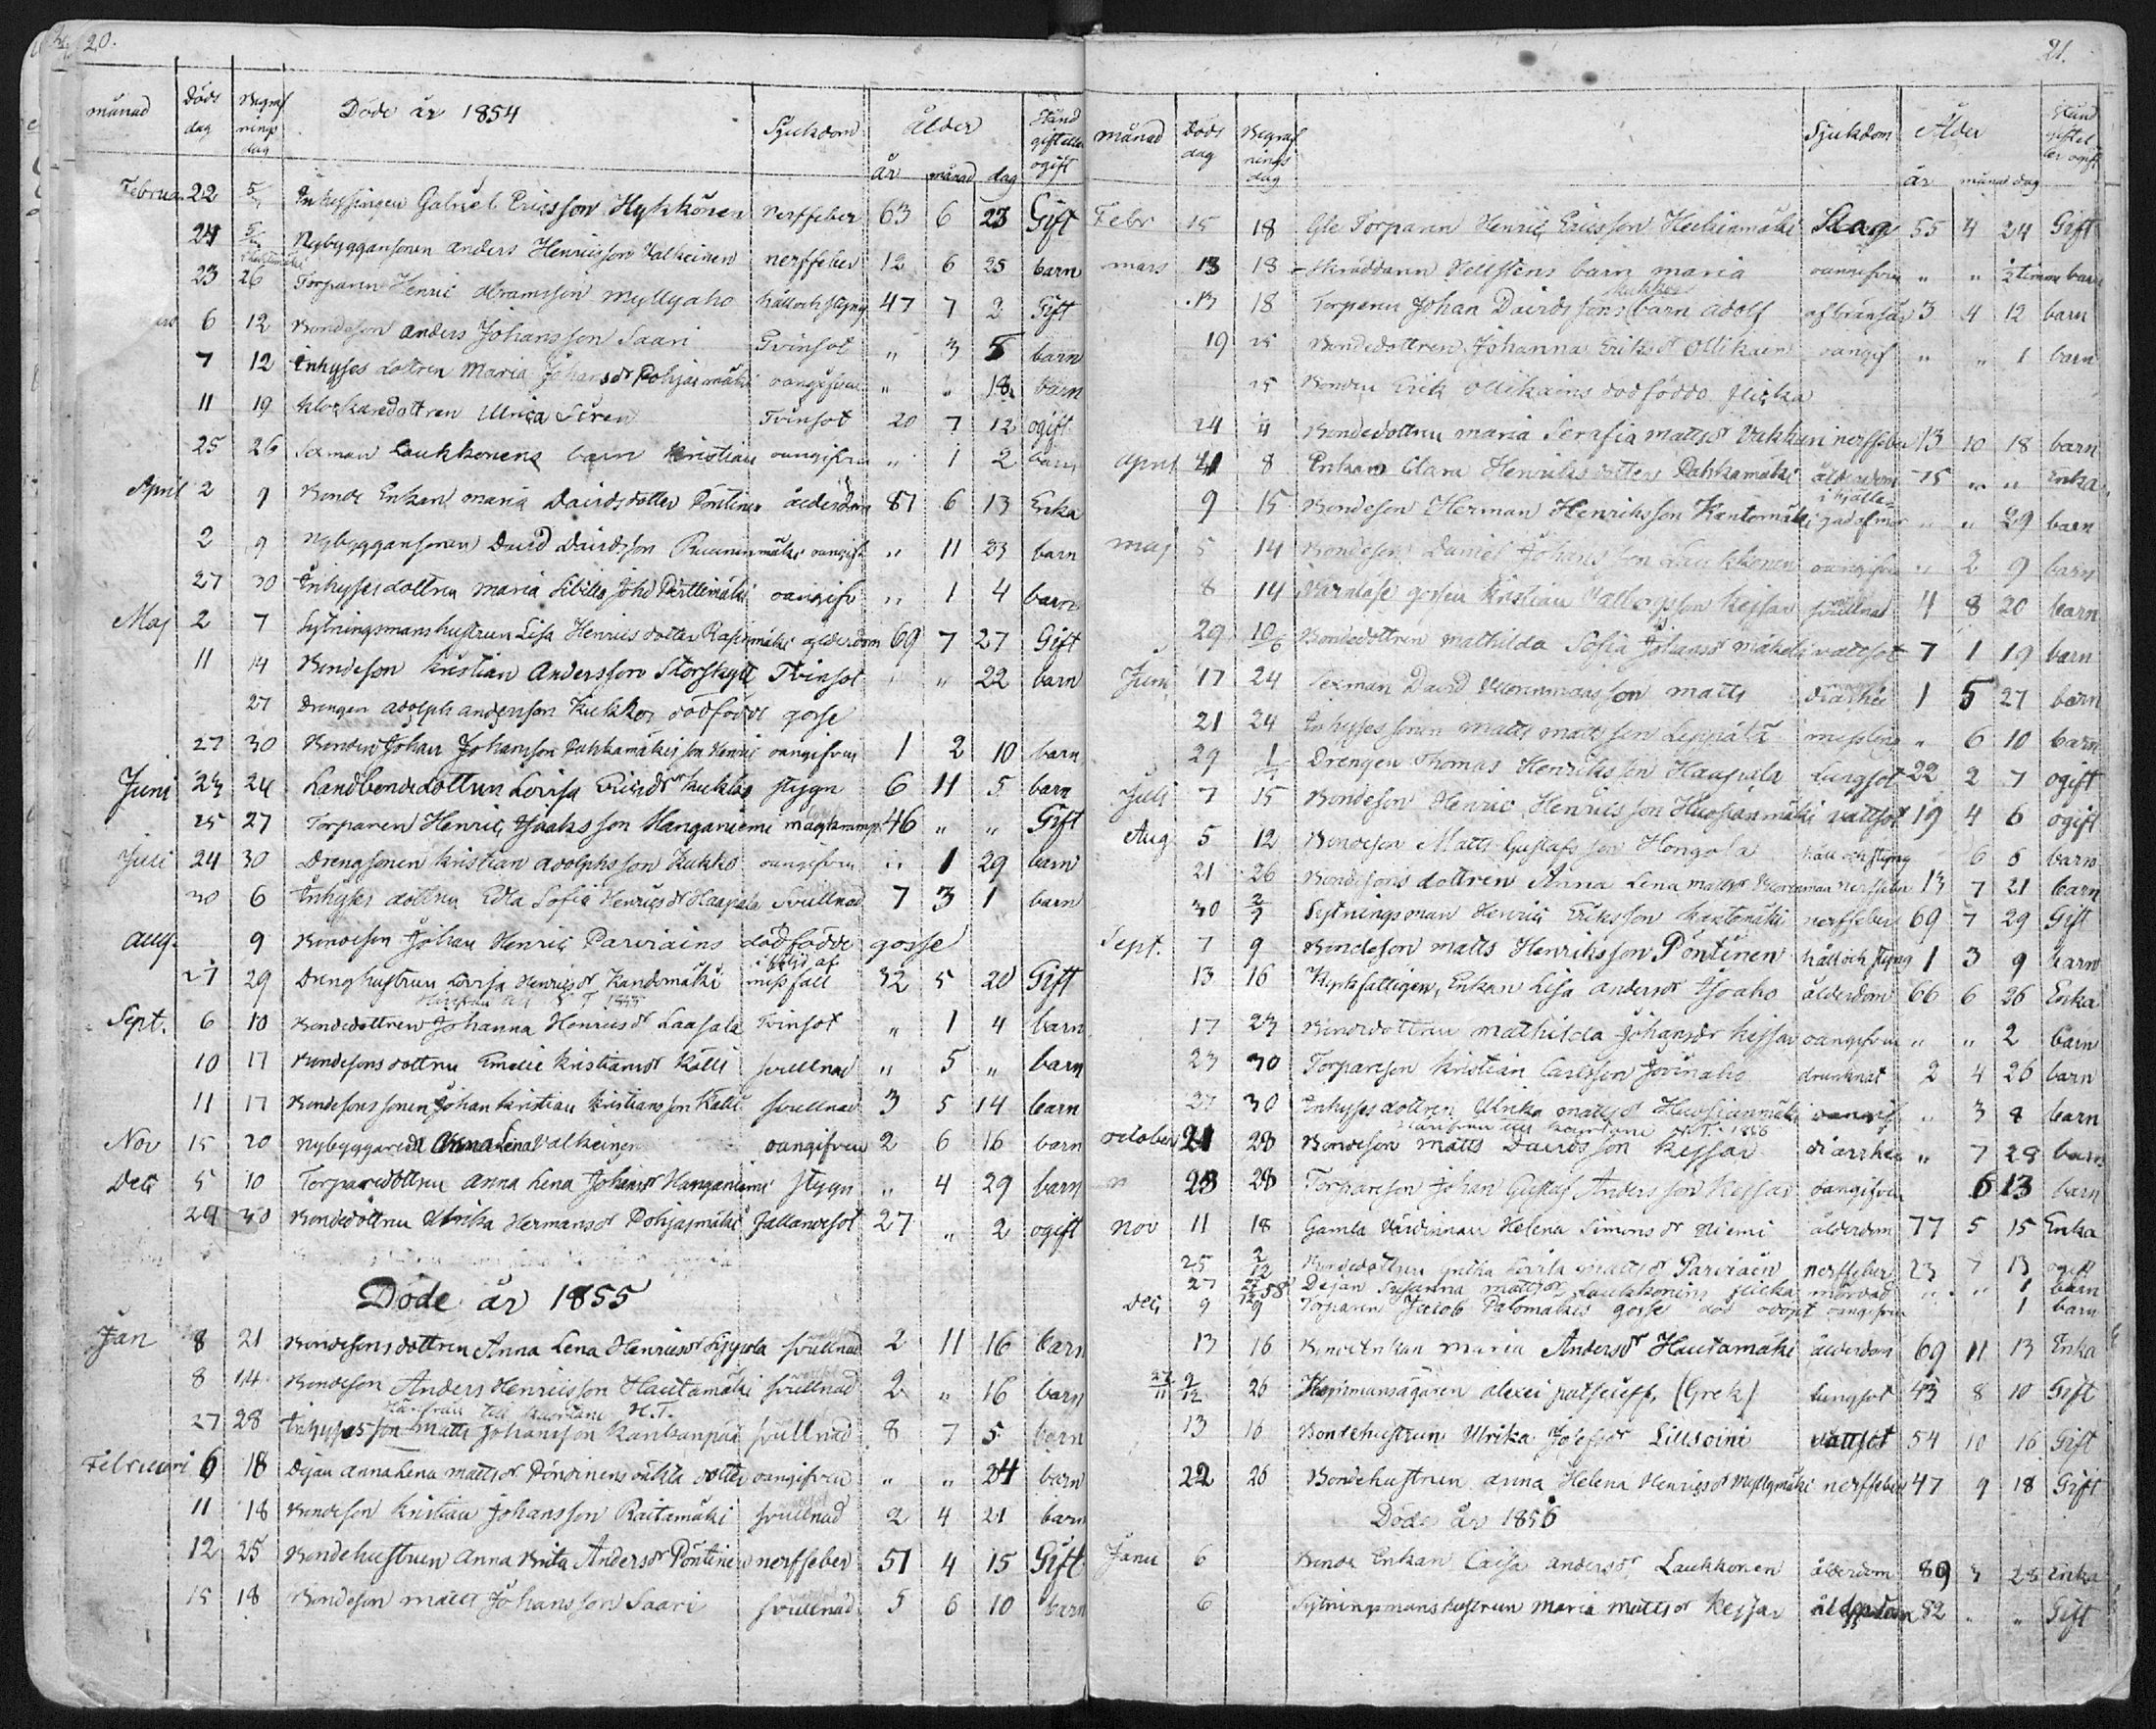 20.
månad Döds dag Begraf nings dag Döde år 1854 Sjukdom ålder år månad dag Stånd gift eller ogift
Februa 22 5/3 Inhysingen Gabriel Ericsson Hykkönen Nerffeber 63 6 23 Gift
24 5/3 Nybyggarsonen Anders Henricsson Valkeinen nerffeber 12 6 25 barn
23 26 Torparen Henric Abramsson Myllyaho håll och styng 47 7 2 Gift
6 12 Bondeson Anders Johansson Saari Tvinsot " 3 5 barn
7 12 Inhyses dottren Maria Johansdr Pohjasmäki oangifven " " 18 barn
11 19 Klockaredottren Ulrica Siren Tvinsot 20 7 12 ogift
25 26 Sexman Laukkonens barn Kristian oangifven " 1 2 barn
April 2 9 Bonde Enkan Maria Davidsdotter Pöntinen ålderdom 87 6 13 Enka
2 9 Nybyggarsonen David Davidsson Ruuninmäki oangif " 11 23 barn
27 30 Inhysesdottren Maria Sibilla Johd Perttimäki oangifv " 1 4 barn
Maj 2 7 Sytningsmanshustrun Lisa Henricsdotter Rasinmäki ålderdom 69 7 27 Gift
11 14 Bondeson Kristian Andersson Storskytt Tvinsot " " 22 barn
27 Drengen Adolph Andersson Kukkos dödfödde gosse
27 30 Bonden Johan Johansson Pakkamäkis son Henric oangifven 1 2 10 barn
Juni 23 24 Landbondedottren Lovisa Ericsdr Kukko stygn 6 11 5 barn
25 27 Torparen Henric Isaksson Hanganiemi magkramp 46 " " Gift
Juli 24 30 Drengsonen Kristian Adolphsson Kukko oangifven " 1 29 barn
30 6 Inhyses dottren Edla Sofia Henricsdr Haapala Svullnad 7 3 1 barn
aug. 9 Bondeson Johan Henric Parviains dödfödde gosse
27 29 Drenghustrun Lovisa Henricsdr Kandomäki i följd af missfall 32 5 20 Gift
Sept. 6 10 Bondedottren Johanna Henricsdr Laasala Tvinsot " 1 4 barn
10 17 Bondesonsdottren Emelie Kristiansdr Källi svullnad " 5 " barn
11 17 Bondesonssonen Johan Kristian Kristiansson Källi svullnad 3 5 14 barn
Nov 15 20 Nybyggaredr Anna Lena Valkeinen oangifven 2 6 16 barn
Dec 5 10 Torparedottren Anna Lena Johansdr Hanganiemi stygn " 4 29 barn
29 30 Bondedottren Ulrika Hermansdr Pohjasmäki fallandesot 27 " 2 ogift
Döde år 1855
Jan 8 21 Bondesonsdottren Anna Lena Henricsdr Sippola svullnad 2 11 16 barn
8 14 Bondeson Anders Henricsson Hautamäki svullnad 2 " 16 barn
27 28 Inhyses son Matts Johansson Kankaanpää svullnad 8 7 5 barn
Februari 6 18 Dejan Anna Lena Mattsdr Pöndinens oäkta dotter oangifven " " 24 barn
11 18 Bondeson Kristian Johansson Raitamäki svullnad 2 4 21 barn
12 25 Bondehustrun Anna Brita Andersdr Pöntinen nerffeber 51 4 15 Gift
15 18 Bondeson Matts Johansson Saari svullnad 5 6 10 barn
21.
månad Döds dag Begraf nings dag Sjukdom Ålder år månad dag Stånd gift el ler ogift
Febr 15 18 Gle Torparen Henric Ericsson Heikinmäki Slag 55 4 24 Gift
mars 13 18 Skräddaren Hellstens barn Maria oangifven " " ½ timma barn
13 18 Torparen Johan Davidssons barn Adolf Kukkos af bränsår 3 4 12 barn
19 25 Bondedottren Johanna Eriksdr Ollikain oangif " " 1 barn
25 Bonden Erik Ollikains dödfödda flicka
24 4 Bondedottren Maria Serafia Mattsdr Vakkuri nerffeber 13 10 18 barn
April 21 8 Enkan Clara Henriksdotter Pakkamäki ålderdom 75 " " Enka
9 15 Bondeson Herman Henriksson Kantomäki ihjällegad af mor " " 29 barn
maj 5 14 Bondeson Daniel Johansson Laukkonen oangifven " 2 9 barn
8 14 Värnlöse gossen Kristian Valborgsson Keisar svullnad 4 8 20 barn
29 10/6 Bondedottren Mathilda Sofia Johansdr Mäkelä vattsot 7 1 19 barn
Juni 17 24 Sexman David Kuonnmaas son Matts diarhée 1 5 27 barn
21 24 Inhyses sonen Matts Mattsson Leppälä messling " 6 10 barn
29 1/7 Drengen Thomas Henriksson Haapala Lungsot 22 2 7 ogift
Juli 7 15 Bondeson Henric Henricsson Huosianmäki vattsot 19 4 6 ogift
Aug 5 12 Bondeson Matts Gustafsson Hongola håll och styng 6 6 barn
21 26 Bondesons dottren Anna Lena Mattsdr nerffeber 13 7 21 barn
30 2/9 Sytningsman Henric Eriksson Kantomäki nerffeber 69 7 29 Gift
Sept. 7 9 Bondeson Matts Henriksson Pöntinen håll och styng 1 3 9 barn
13 16 Kyrkfattigen, Enkan Lisa Andersdr Isoaho ålderdom 66 6 26 Enka
17 23 Bondedottren Mathilda Johansdr Keisar oangifven " " 2 barn
23 30 Torpareson Kristian Carlsson Jöuinaho drunknat 2 4 26 barn
27 30 Inhysesdottren Ulrika Mattsdr Huosianmäki oangif " 3 8 barn
October 21 28 Bondeson Matts Davidsson Keisar diarrhée " 7 28 barn
" 23 28 Torpareson Johan Gustaf Andersson Keisar oangifven 6 13 barn
Nov 11 18 Gamla Värdinnan Helena Simonsdr Niemi ålderdom 77 5 15 Enka
25 2/12 Bondedottren Greta Lovisa Mattsdr Parviain nerffeber 23 7 13 ogift
27 Dejan Susanna Mattsdr Laukkonens flicka mördad " " 1 barn
Dec 9 9 Torparen Jacob Palomäkis gosse död odöpt oangifven 1 barn
13 16 Bondeenkan Maria Andersdr Hautamäki ålderdom 69 11 13 Enka
27/11 2/12 26 Alexei (Grek) lungsot 43 8 10 Gift
13 16 Bondehustrun Ulrika Josefsdr Liisoini vattsot 54 10 16 Gift
22 26 Bondehustrun Anna Helena Henricsdr Myllymäki nerffeber 47 9 18 Gift
Döde år 1856
Janu 6 Bonde Enkan Caisa Andersdr Laukkonen ålderdom 89 3 28 Enka
6 Sytningsmanshustrun Maria Mattsdr Keisar ålderdom 82 " " Gift